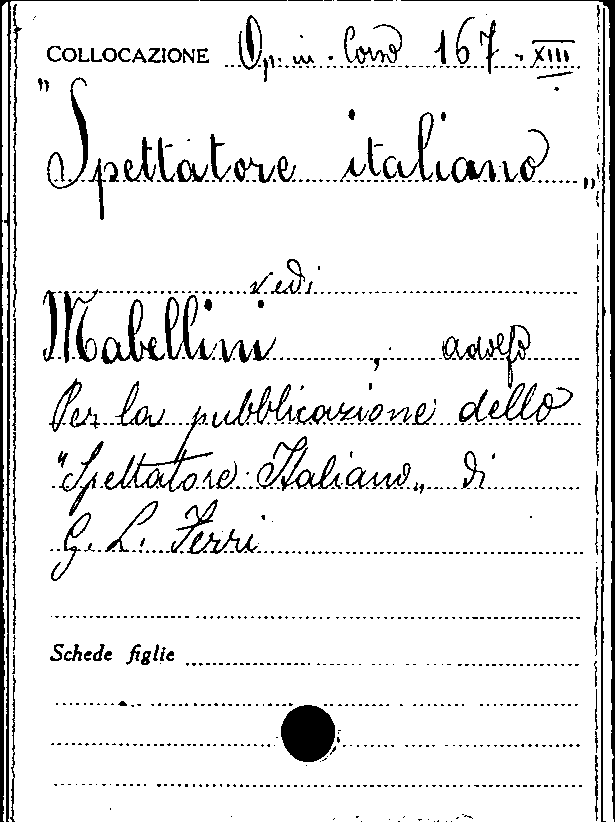 COLLOCAZIONE Op. in. Corso 167 - XIII
"Spettatore italiano"
vedi
Mabellini, adolfo
Per la pubblicazione dello
"Spettatore Italiano„ di
G. L. Ferri
Schede figlie